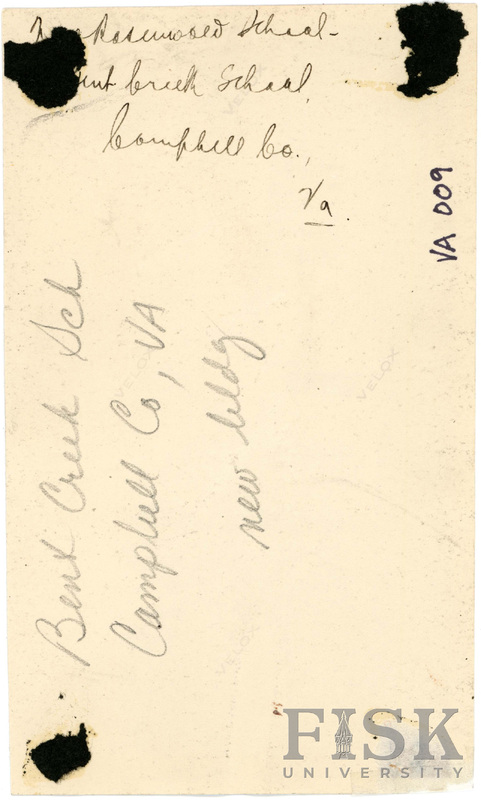 Rosenwald School-
Creek School,
Campbell Co.,
Va.
VA 009
Bent Creek Sch
Campbell Co, VA
new bldg
VELOX
VELOX
VELOX
FISK
UNIVERSITY